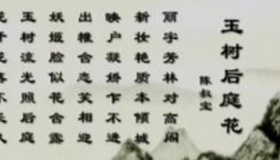 玉树后庭花
陈叔宝
丽宇芳林对高阁
新妆艳质本倾城
映户凝娇乍不进
出帷含态笑相迎
妖姬脸似花含露
玉树流光照后庭
花开花落不长久